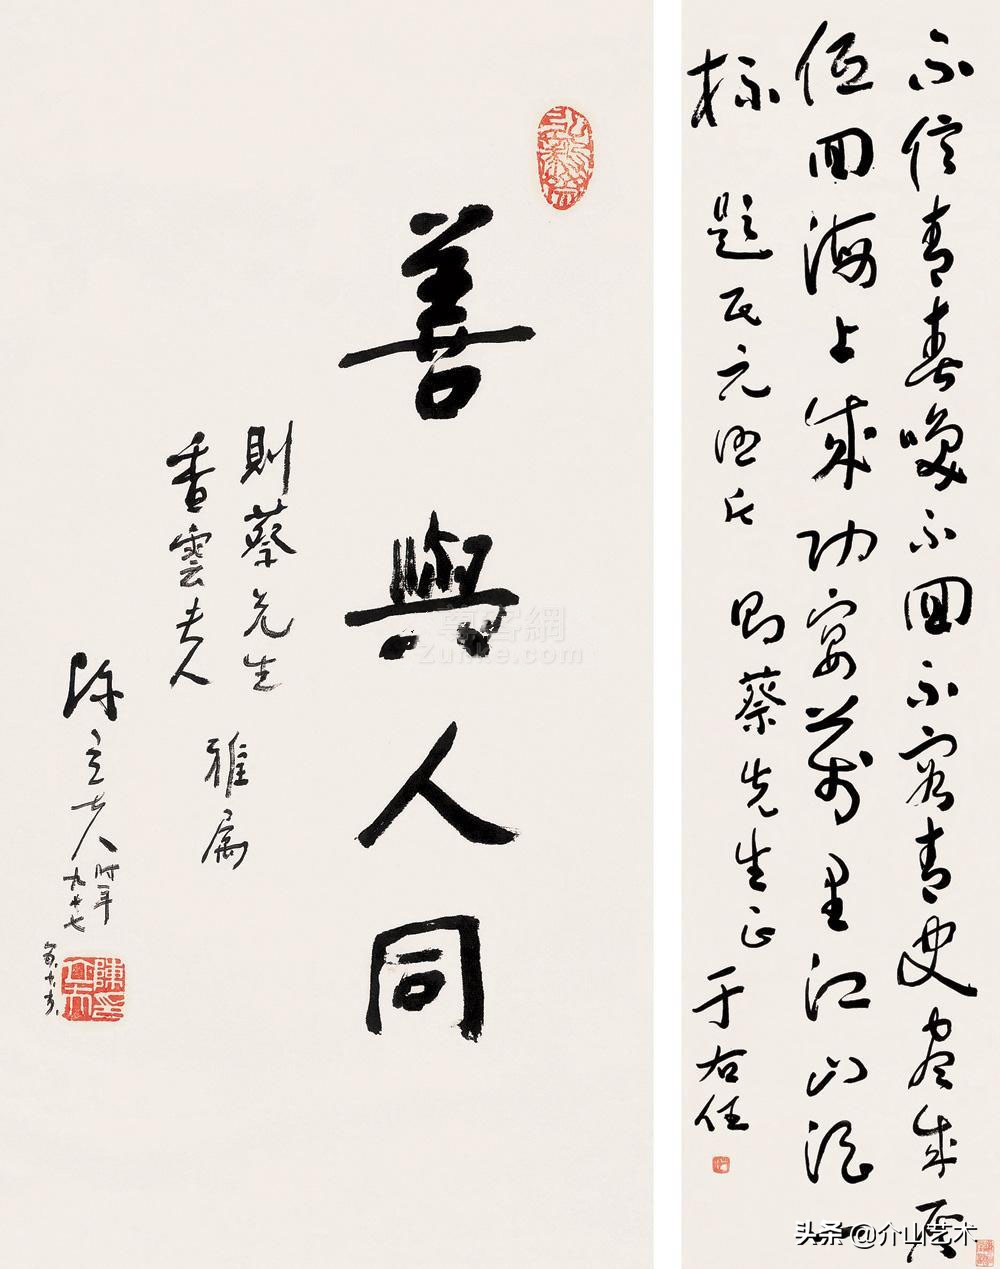 善與人同
則蔡先生
香雲夫人
雅屬
陳立夫
時年
九十七
陳立夫印
尊客網
Zunke.com
不信青春喚不回不容青史盡成灰
低回海上成功宴萬里江山酒一
杯 題民元照片 則蔡先生正 于右任
头条 @介山艺术